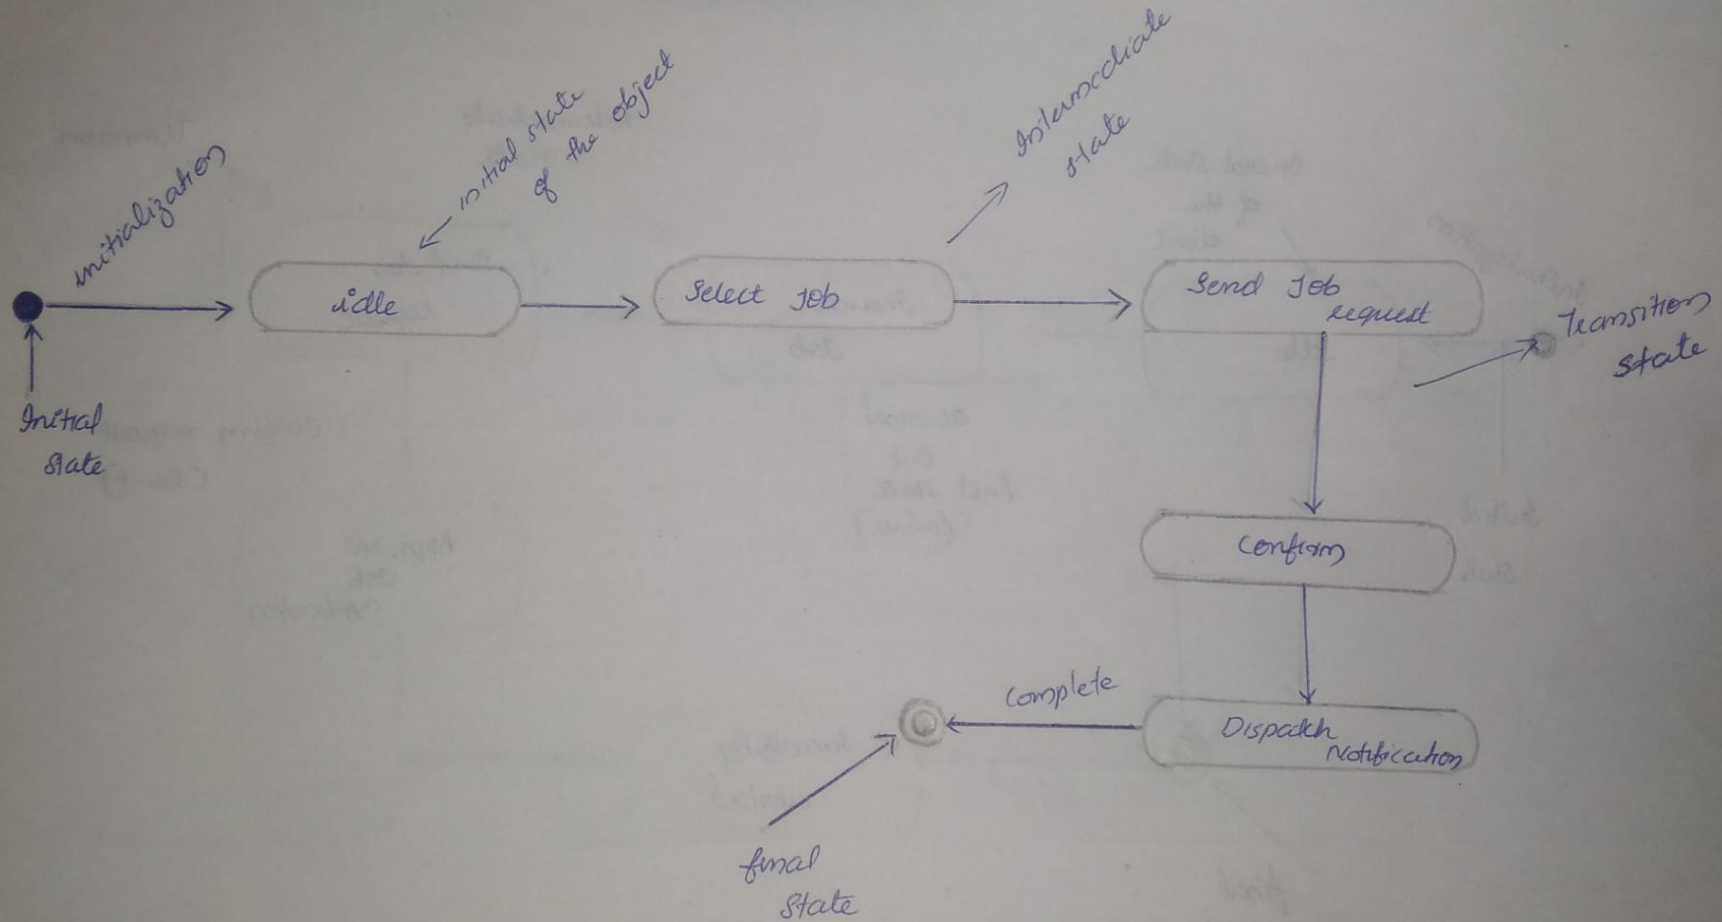 initialization
initial state
of the object
Intermediate
state
idle
Select Job
Send Job
request
Transition
state
Initial
state
Confirm
Complete
Dispatch
Notification
final
state